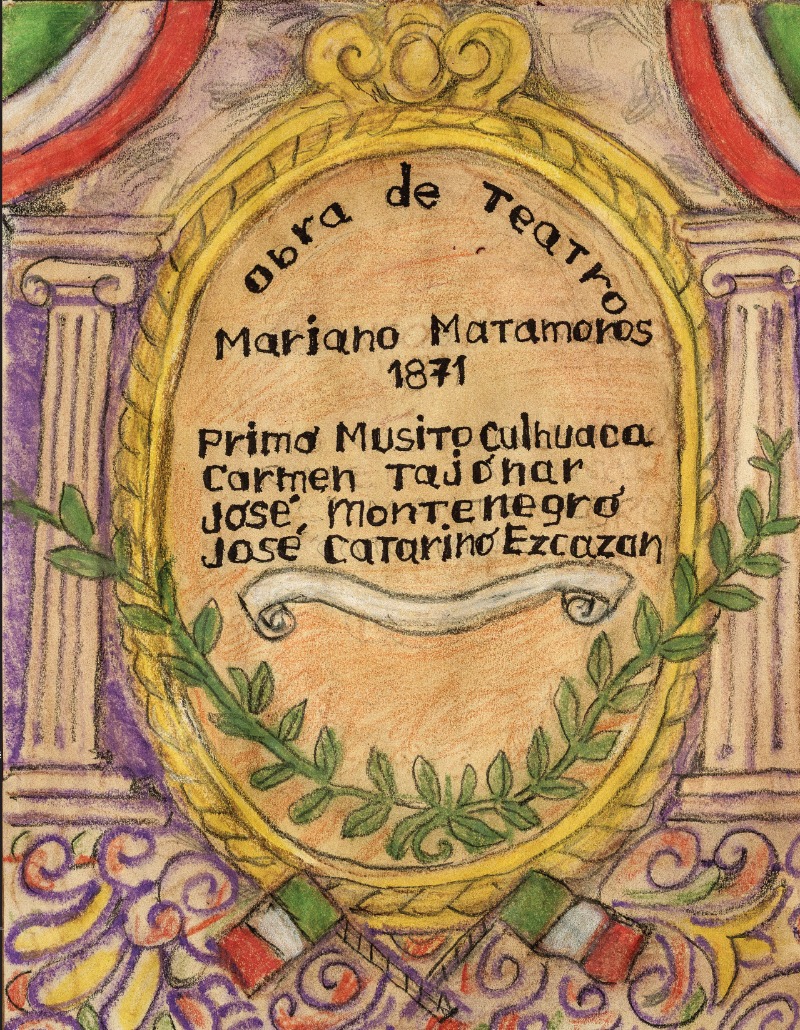 Obra de Teatro
Mariano Matamoros
1871
Primo Musito Culhuaca
Carmen Tajonar
José, Montenegro
José Catarino Ezcazan